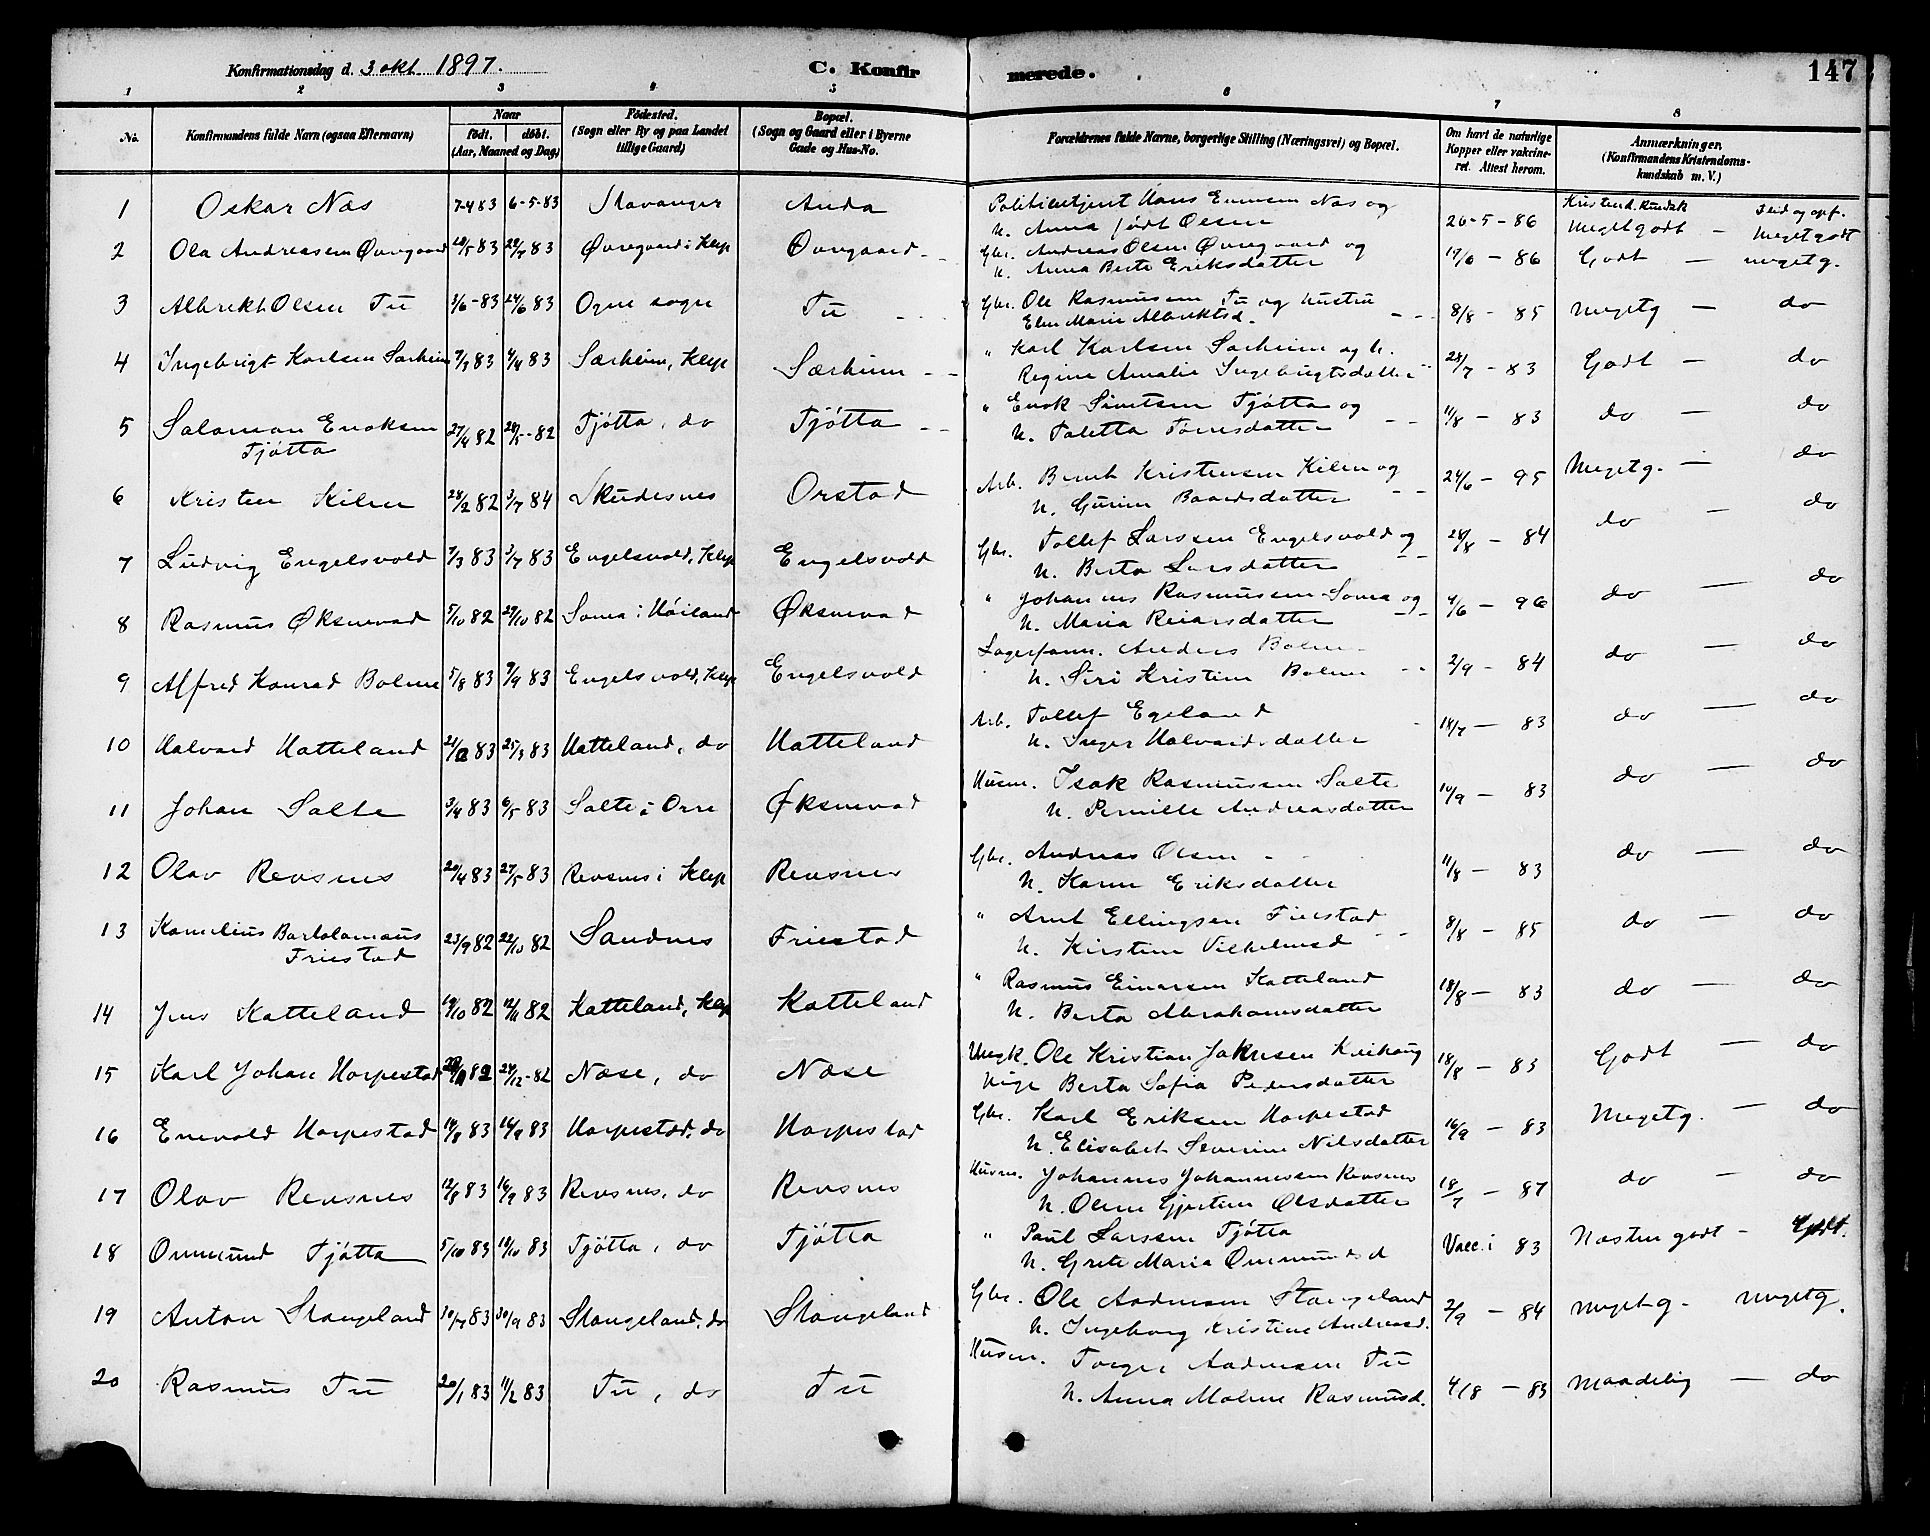 Konfirmationsdag d. 3 okt. 1897. C. Konfir merede. 147
1 2 3 4 5 6 7 8
No. Konfirmandens fulde Navn (ogsaa Efternavn) Naar født, døbt. (Aar, Maaned og Dag) Fødested. (Sogn eller By og paa Landet tillige Gaard) Bopæl. (Sogn og Gaard eller i Byerne Gade og Hus-No. Forældrenes fulde Navne, borgerlige Stilling (Næringsvei) og Bopæl. Om havt de naturlige Kopper eller vakcineret. Attest herom. Anmærkninger. (Konfirmandens Kristendomskundskab m. V.)
Kristend. Kundsk Flid og opf.
1 Oskar Næs 7-4 83 6-5-83 Stavanger Anda Politibetjent Hans Næs og
h. Anna født Olsen 26-5-86 Megetgodt — Megetgodt
2 Ola Andreassen Øvregaard /5 83 83 Øvregaard i Klep Øvregaard Gbr. Andreas Olsen Øvregaard og
h. Anna Berte Eriksdatter 19/6 - 86 Godt — megetg.
3 Albrekt Olsen Tu 3/6-83 24/6 83 Ogne sogn Tu Gbr. Ole Rasmussen Tu og hustru
Elen Marie Albriktsd. 8/8 - 85 Megetg — do
4 Ingebrigt Karlsen Særheim 7/3 83 /4 83 Særheim, Klep Særheim " Karl Karlsen Særheim og h.
Regine Amalie Ingebrigtsdatter 28/7 - 83 Godt — do
5 Salamon Enoksen
Tjøtta 27/4 82 28/5-82 Tjøtta, do Tjøtta " Enok Sivertsen Tjøtta og
h. Taletta Tørresdatter 11/8 - 83 do — do
6 Kristen Kilen 28/2 82 3/7 84 Skudesnes Orstad Arb. Bernt Kristensen Kilen og
h. Gurine Baardsdatter 24/6 - 95 Megetg. — do
7 Ludvig Engelsvold 7/3 83 3/7 83 Engelsvold, Klep Engelsvold Gbr. Tollef Larsen Engelsvold og
h. Berta Larsdatter 28/8 - 84 do — do
8 Rasmus Øksnevad 5/10 82 29/10 82 Soma i Høiland Øksnevad " Johannes Rasmussen Soma og
h. Maria Reiarsdatter 4/6 - 96 do — do
9 Alfred Konrad Bolme 5/8 83 9/9 83 Engelsvold, Klep Engelsvold Lagerform. Anders Bolme
h. Siri Kristine Bolme 2/9 - 84 do — do
10 Halvard Hatteland 21/2 83 25/3 83 Hatteland, do Hatteland Arb. Tollef Egeland
h. Inger Halvardsdatter 18/7 - 83 do — do
11 Johan Salte 3/4 83 6/5 83 Salte i Orre Øksnevad Husm. Isak Rasmussen Salte
h. Pernille Andreasdatter 14/9 - 83 do — do
12 Olav Revsnes 20/4 83 27/5 83 Revsnes i Klep Revsnes Gbr. Andreas Olsen
h. Karen Eriksdatter 11/8 - 83 do — do
13 Kornelius Bartolomæus
Friestad 23/9 82 22/10 82 Sandnes Friestad " Arnt Ellingsen Friestad
h. Kirstine Vilhelmsd 8/8 - 85 do — do
14 Jens Katteland 19/10 82 12/11 82 Katteland, Klep Katteland " Rasmus Einarsen Katteland
h. Berta Abrahamsdatter 18/8 - 83 do — do
15 Karl Johan Horpestad 82 24/12-82 Næse, do Næse Ungk. Ole Kristian Jakobsen
Pige Berta Sofia Pedersdatter 18/8 - 83 Godt — do
16 Enevold Horpestad 14/8 83 16/9 83 Horpestad, do Horpestad Gbr. Karl Eriksen Horpestad
h. Elisabet Severine Nilsdatter 16/9 - 83 Megetg. — do
17 Olav Revsnes 12/8 83 16/9 83 Revsnes, do Revsnes Husm. Johannes Johannessen Revsnes
h. Oline Gjertine Olsdatter 18/7 - 87 do — do
18 Ommund Tjøtta 5/10 83 14/10 83 Tjøtta, do Tjøtta " Paul Larsen Tjøtta
h. Grete Maria Ommundsd Vacc. i 83 Næsten godt — Godt.
19 Anton Stangeland 10/7 83 30/9 83 Stangeland, do Stangeland Gbr. Ole Andersen Stangeland
h. Ingeborg Kristine Andreasd. 2/9 - 84 Megetg. megetg.
20 Rasmus Tu 20/1 83 11/2 83 Tu, do Tu Husm. Torger Andersen Tu
h. Anna Malene Rasmusd. 4/8 - 83 Maadelig — do